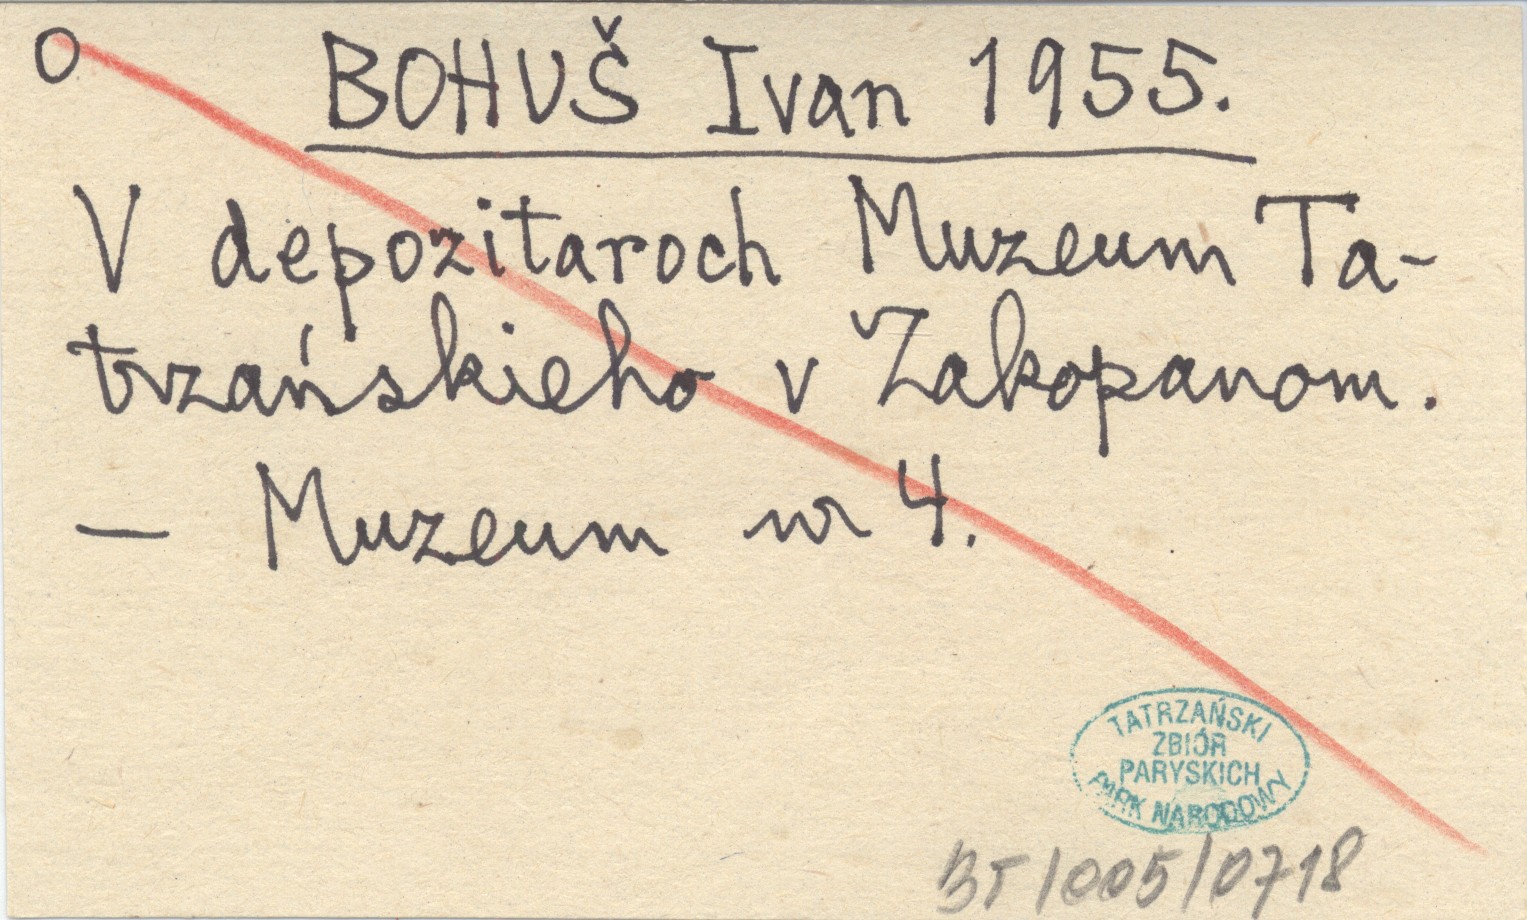 O BOHUŠ Ivan 1955.
V depozitaroch Muzeum Ta-
trzańskieho v Zakopanom.
— Muzeum nr 4.
TATRZAŃSKI
ZBIÓR
PARYSKICH
PARK NARODOWY
BT/005/0718